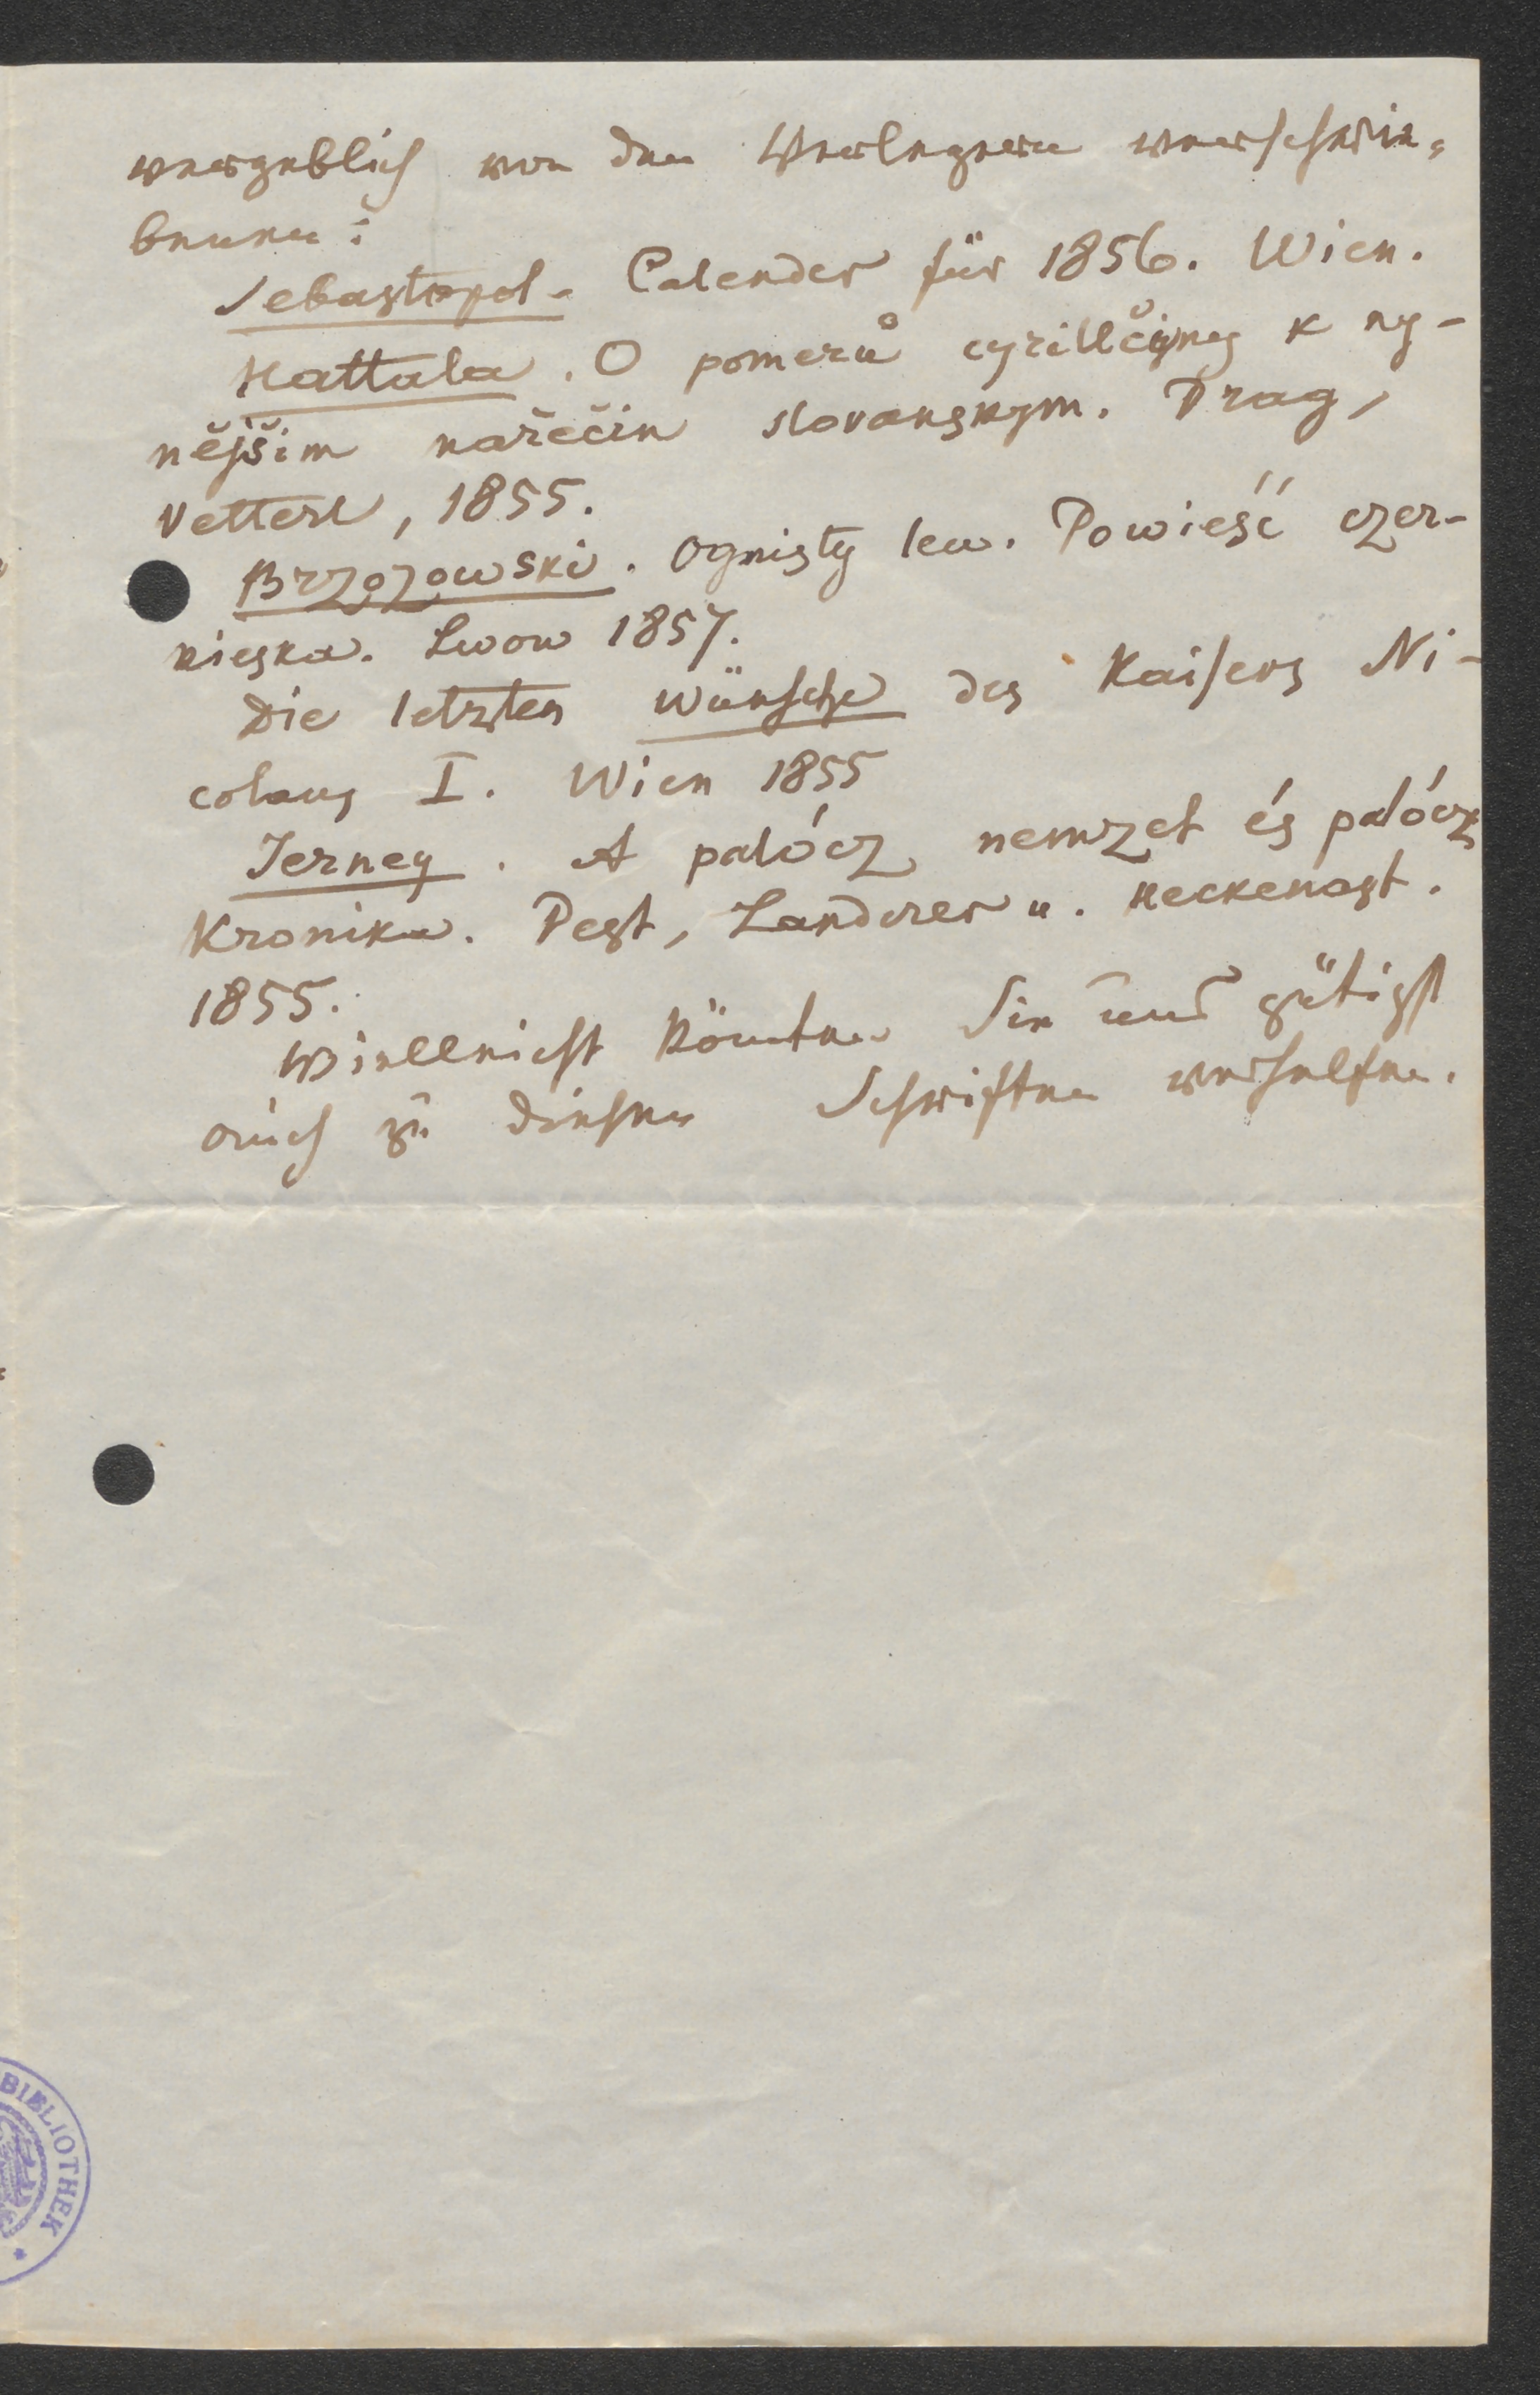 vergeblich von den Verlegern verschrie-
benen:
Sebastopol-Calender für 1856. Wien.
Hattala. O pomerů cyrillčiny k ny-
nějším nařečin slovanskym. Prag,
Vetterl, 1855.
Brzozowski. Ognisty lew. Powieść czer-
kieska. Lwow 1857.
Die letzten Wünsche des Kaisers Ni-
colaus I. Wien 1855
Jerney. A palócz nemzet és palócz
Kronika. Pest, Landerer u. Heckenast.
1855.
Vielleicht könnten Sie uns gütigst
auch zu diesen Schriften verhelfen.
BIBLIOTHEK